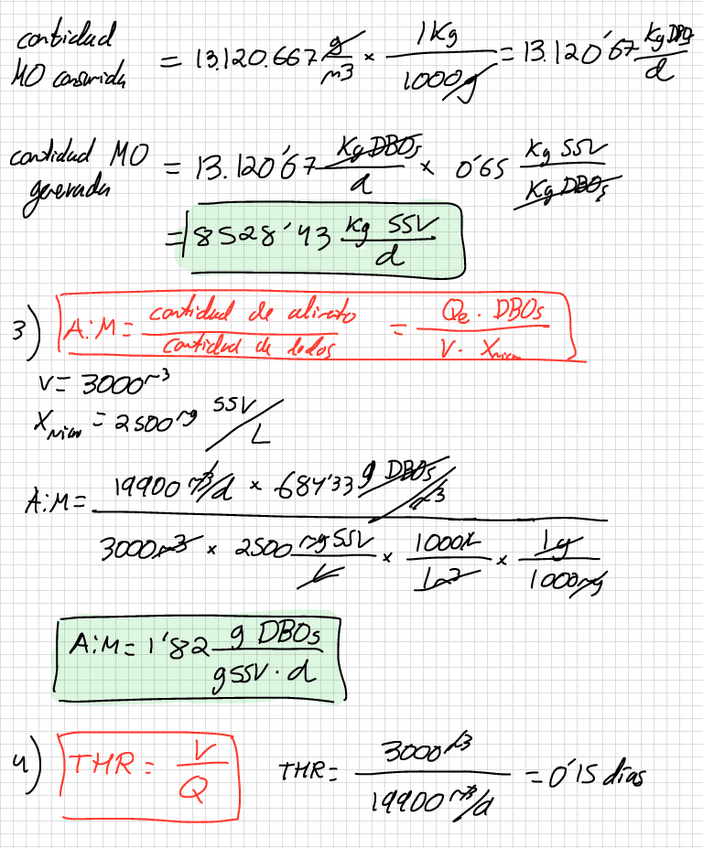 cantidad MO consumida = 13.120.667 g/m3 × 1Kg/1000g = 13.120'67 Kg DBO5/d
cantidad MO generada = 13.120'67 Kg DBO5/d × 0'65 Kg SSV/Kg DBO5
= 8528'43 Kg SSV/d
3) A:M = cantidad de alimento/cantidad de lodos = Qe · DBO5/V · Xmicro
V = 3000 m3
Xmicro = 2500 mg SSV/L
A:M = 19900 m3/d × 684'33 g DBO5/m3
3000 m3 × 2500 mg SSV/L × 1000L/1m3 × 1g/1000mg
A:M = 1'82 g DBO5/g SSV · d
4) THR = V/Q THR = 3000 m3/19900 m3/d = 0'15 días